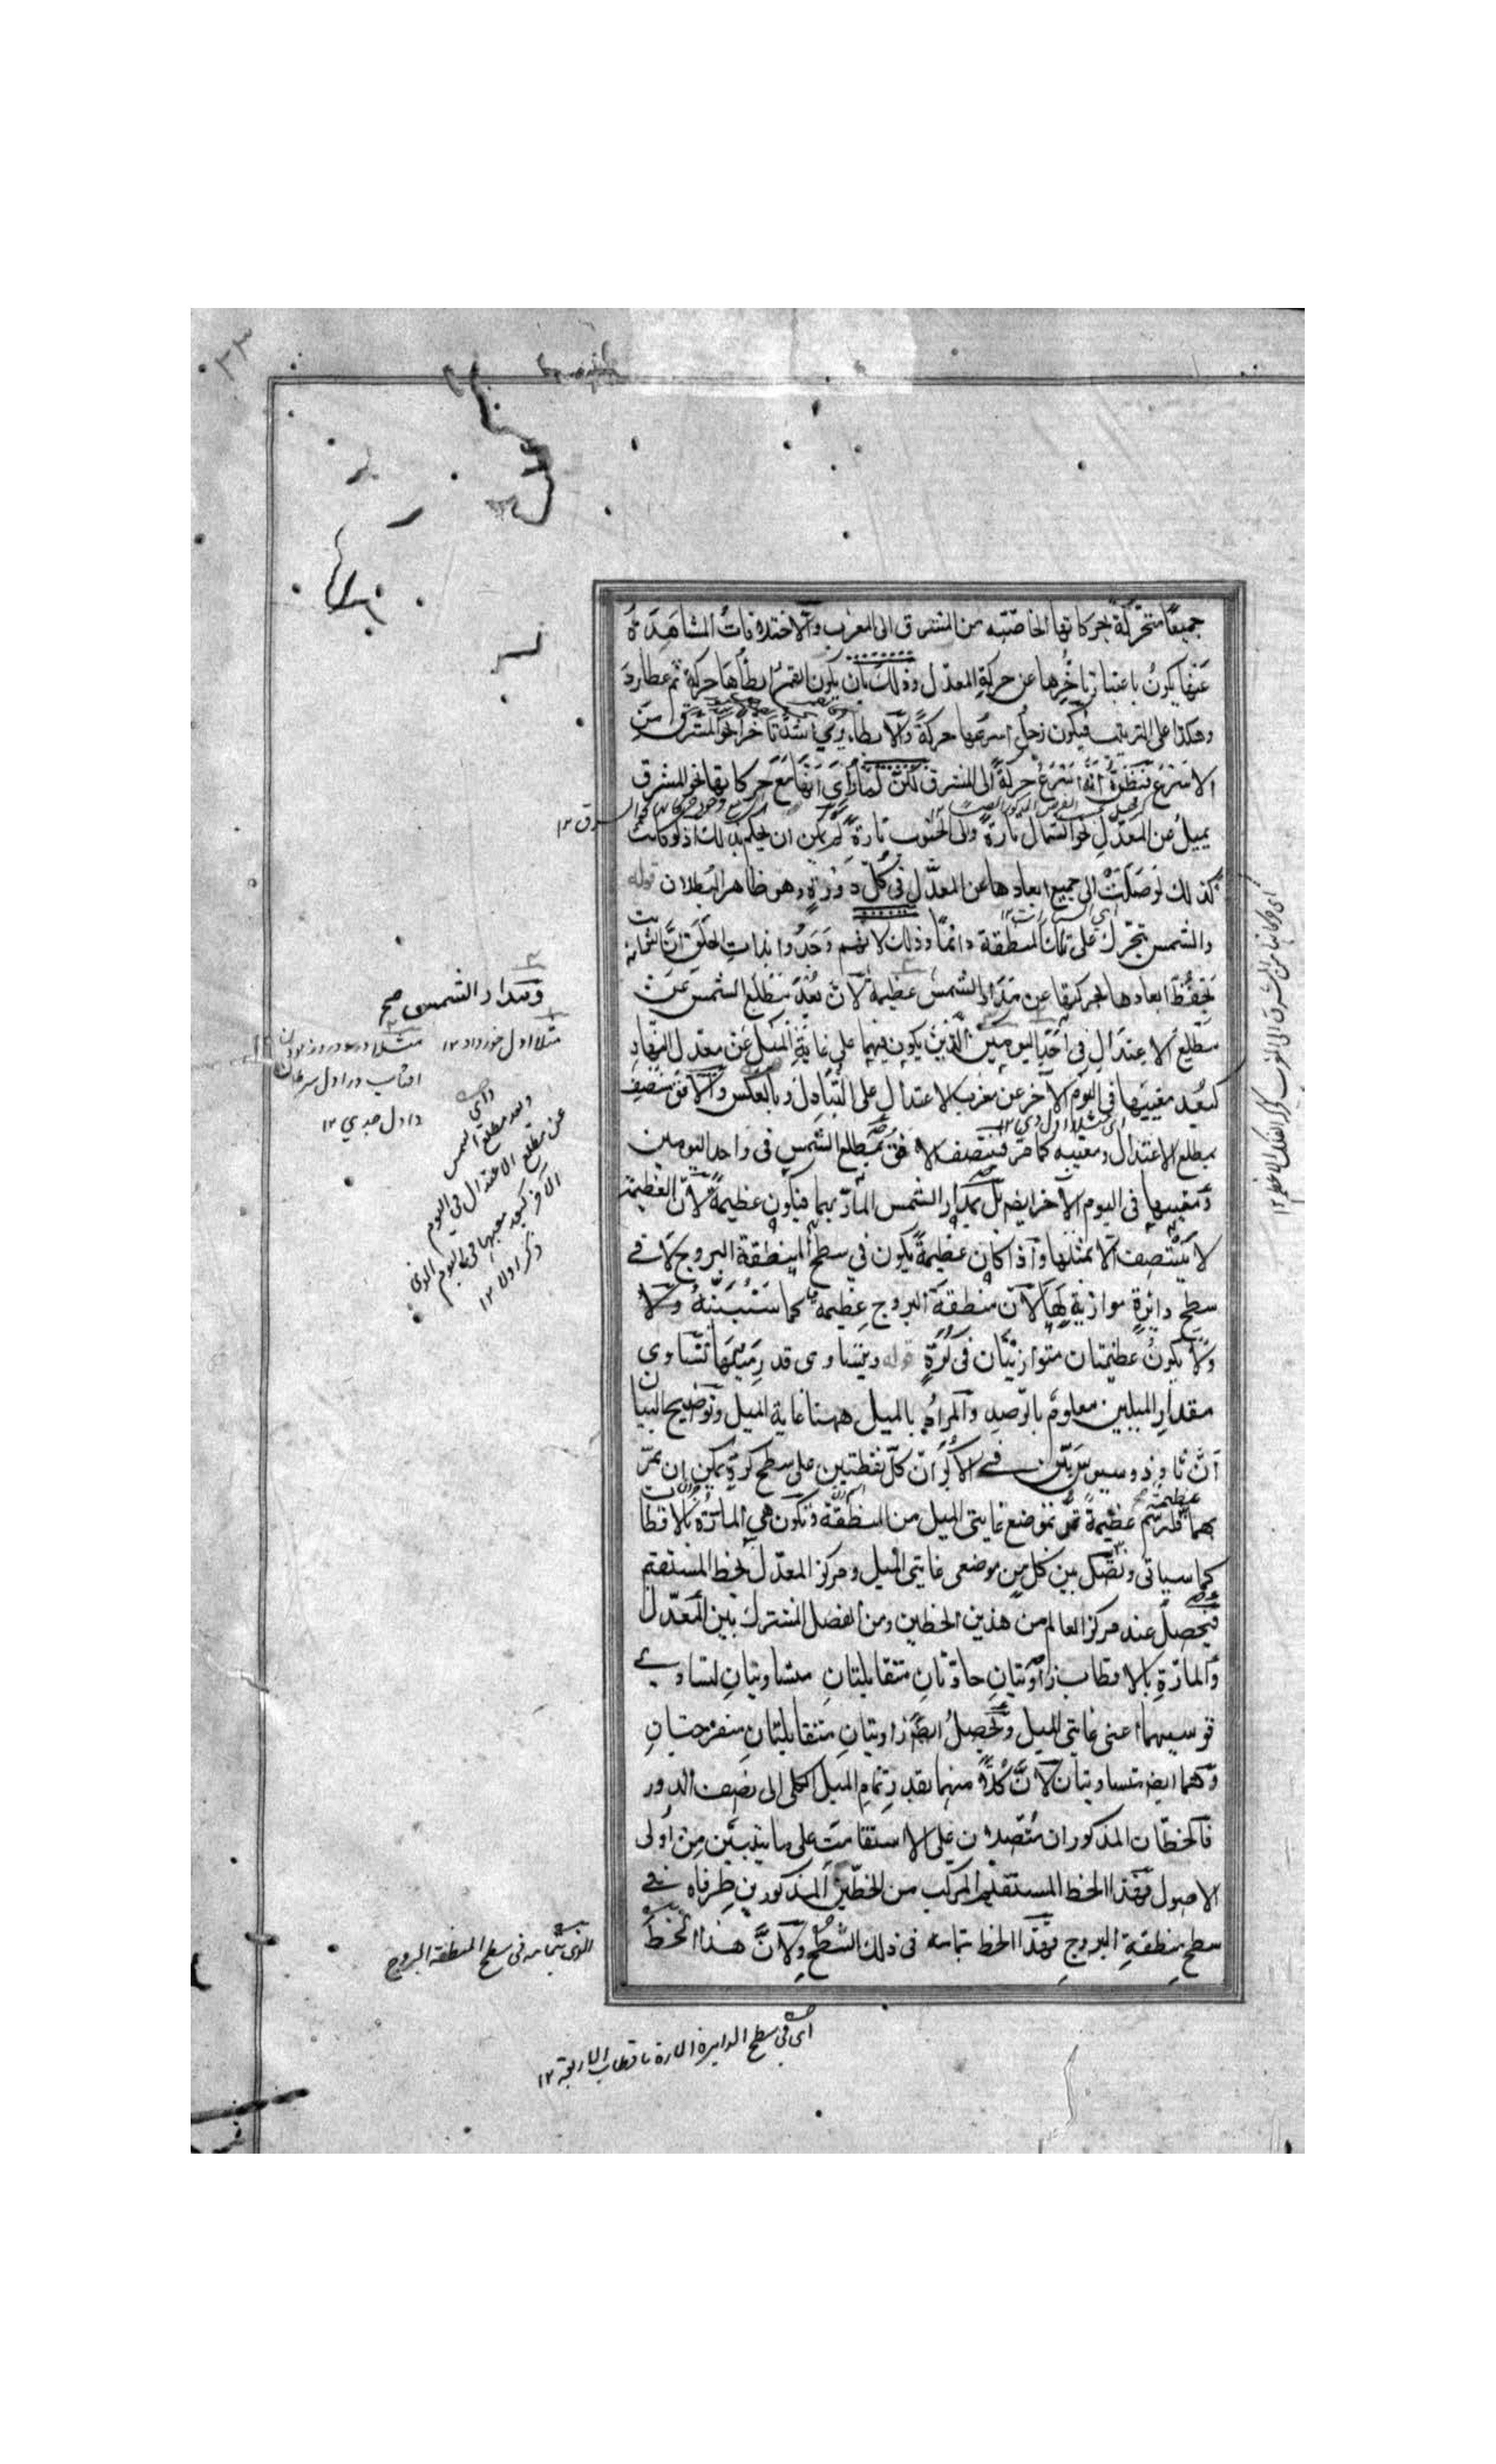 جميعًا متحرّكة بحركاتها الخاصّته من المشرق الى المغرب والاختلافات المشاهدة
عنها يكون باعتبار تاخّرها عن حركة المعدّل وذلك بان يكون القمر ابطأها حركة ثم عطارد
وهكذا على الترتيب فيكون زحل اسرعها حركةً والابطاء يرى اشدّ تاخرا نحو المشرق من
الاسرع فنظنّ انّه اسرع حركةً الى المشرق لكن لمّا رأى انها مع حركاتها نحو المشرق
يميل عن المعدّل نحو الشمال تارةً والى الجنوب تارةً لم يمكن ان يحكم بذلك اذ لو كانت
كذلك لوصلت الى جميع ابعادها عن المعدّل فى كلّ دورةٍ وهو ظاهر البطلان قوله
والشمس تتحرّك على تلك المنطقة دائمًا وذلك لانهم وجدوا بذات الحلق انّ الثابت
تحفظ ابعادها بحركتها عن مدار الشمس عظيمة لانّ بُعد مطلع الشمس عن
مطلع الاعتدال فى احد اليومين الذين يكون فيهما على غاية الميل عن معدل النهار
كبُعد مغيبها فى اليوم الآخر عن مغرب الاعتدال على التبادل وبالعكس والافق منتصف
بمطلع الاعتدال ومغيبه كما مرّ فينتصف الافق بمطلع الشمس فى واحد اليومين
ومغيبها فى اليوم الآخر ايضا بل بمدار الشمس المارّ بهما فيكون عظيمةً لانّ العظيمة
لا ينتصف الا بمثلها واذا كان عظيمةً يكون في سطح المنطقة البروج لا فى
سطح دائرةٍ موازيةٍ لها لانّ منطقة البروج عظيمة كما سنبيّنه ولا
ولا يكون عظيمتان متوازيتان فى كرةٍ قوله ويتساوى قدر ميلهما تساوى
مقدار الميلين معلوم بالرصد والمراد بالميل ههنا غاية الميل وتوضيح البيان
انّ ثاوذوسيوس بيّن فى الاكر انّ كلّ نقطتين على سطح كرةٍ يمكن ان تمرّ
بهما عظيمة فلنرسم عظيمةً تمرّ بموضع غايتى الميل من المنطقة وتكون هي المارّة بالاقطاب
كما سياتى ونصل بين كلٍ من موضعى غايتى الميل ومركز المعدّل بخط المستقيم
فيحصل عند مركز العالم من هذين الخطين ومن الفصل المشترك بين المعدّل
والمارّة بالاقطاب زاويتانِ حادّتانِ متقابلتانِ متساويتانِ لتساوى
قوسيهما اعنى غايتى الميل ويحصل ايضًا زاويتانِ متقابلتانِ منفرجتانِ
وهما ايضا متساويتان لانّ كلًّا منهما بقدر تمام الميل الكلى الى نصف الدور
فالخطّان المذكوران متّصلان على الاستقامت على ما يتبيّن من أولى
الاصول فهذا الخط المستقيم المركب من الخطّين المذكورين طرفاه فى
سطح منطقة البروجِ فهذا الخط بتمامه فى ذلك السّطح ولانّ هذا الخط
ومدار الشمس صح
مثلا اول خرداد ١٢
واول جدي ١٢
الذى بتمامه فى سطح المنطقة البروج
اى فى سطح الدايرة المارة باقطاب الاربعة ١٢